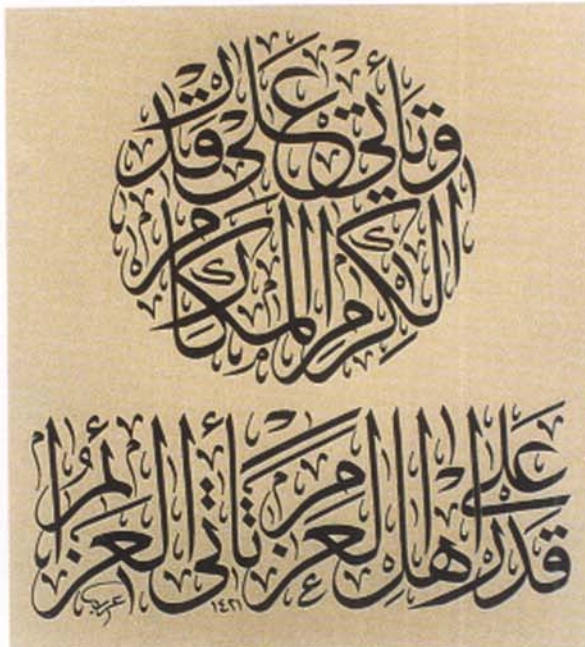 وتأتي على قدر
الكرام المكارم
على قدر أهل العزم تأتي العزائم
١٤٢١